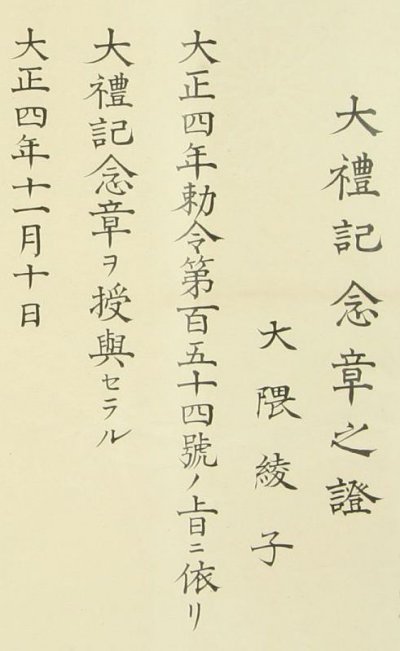 大禮記念章之證
大隈綾子
大正四年勅令第百五十四號ノ旨ニ依リ
大禮記念章ヲ授與セラル
大正四年十一月十日